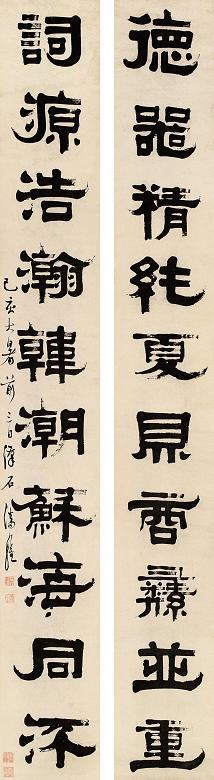 德器精純夏鼎商彝並重
詞源浩瀚韓潮蘇海同流
己亥大暑前三日